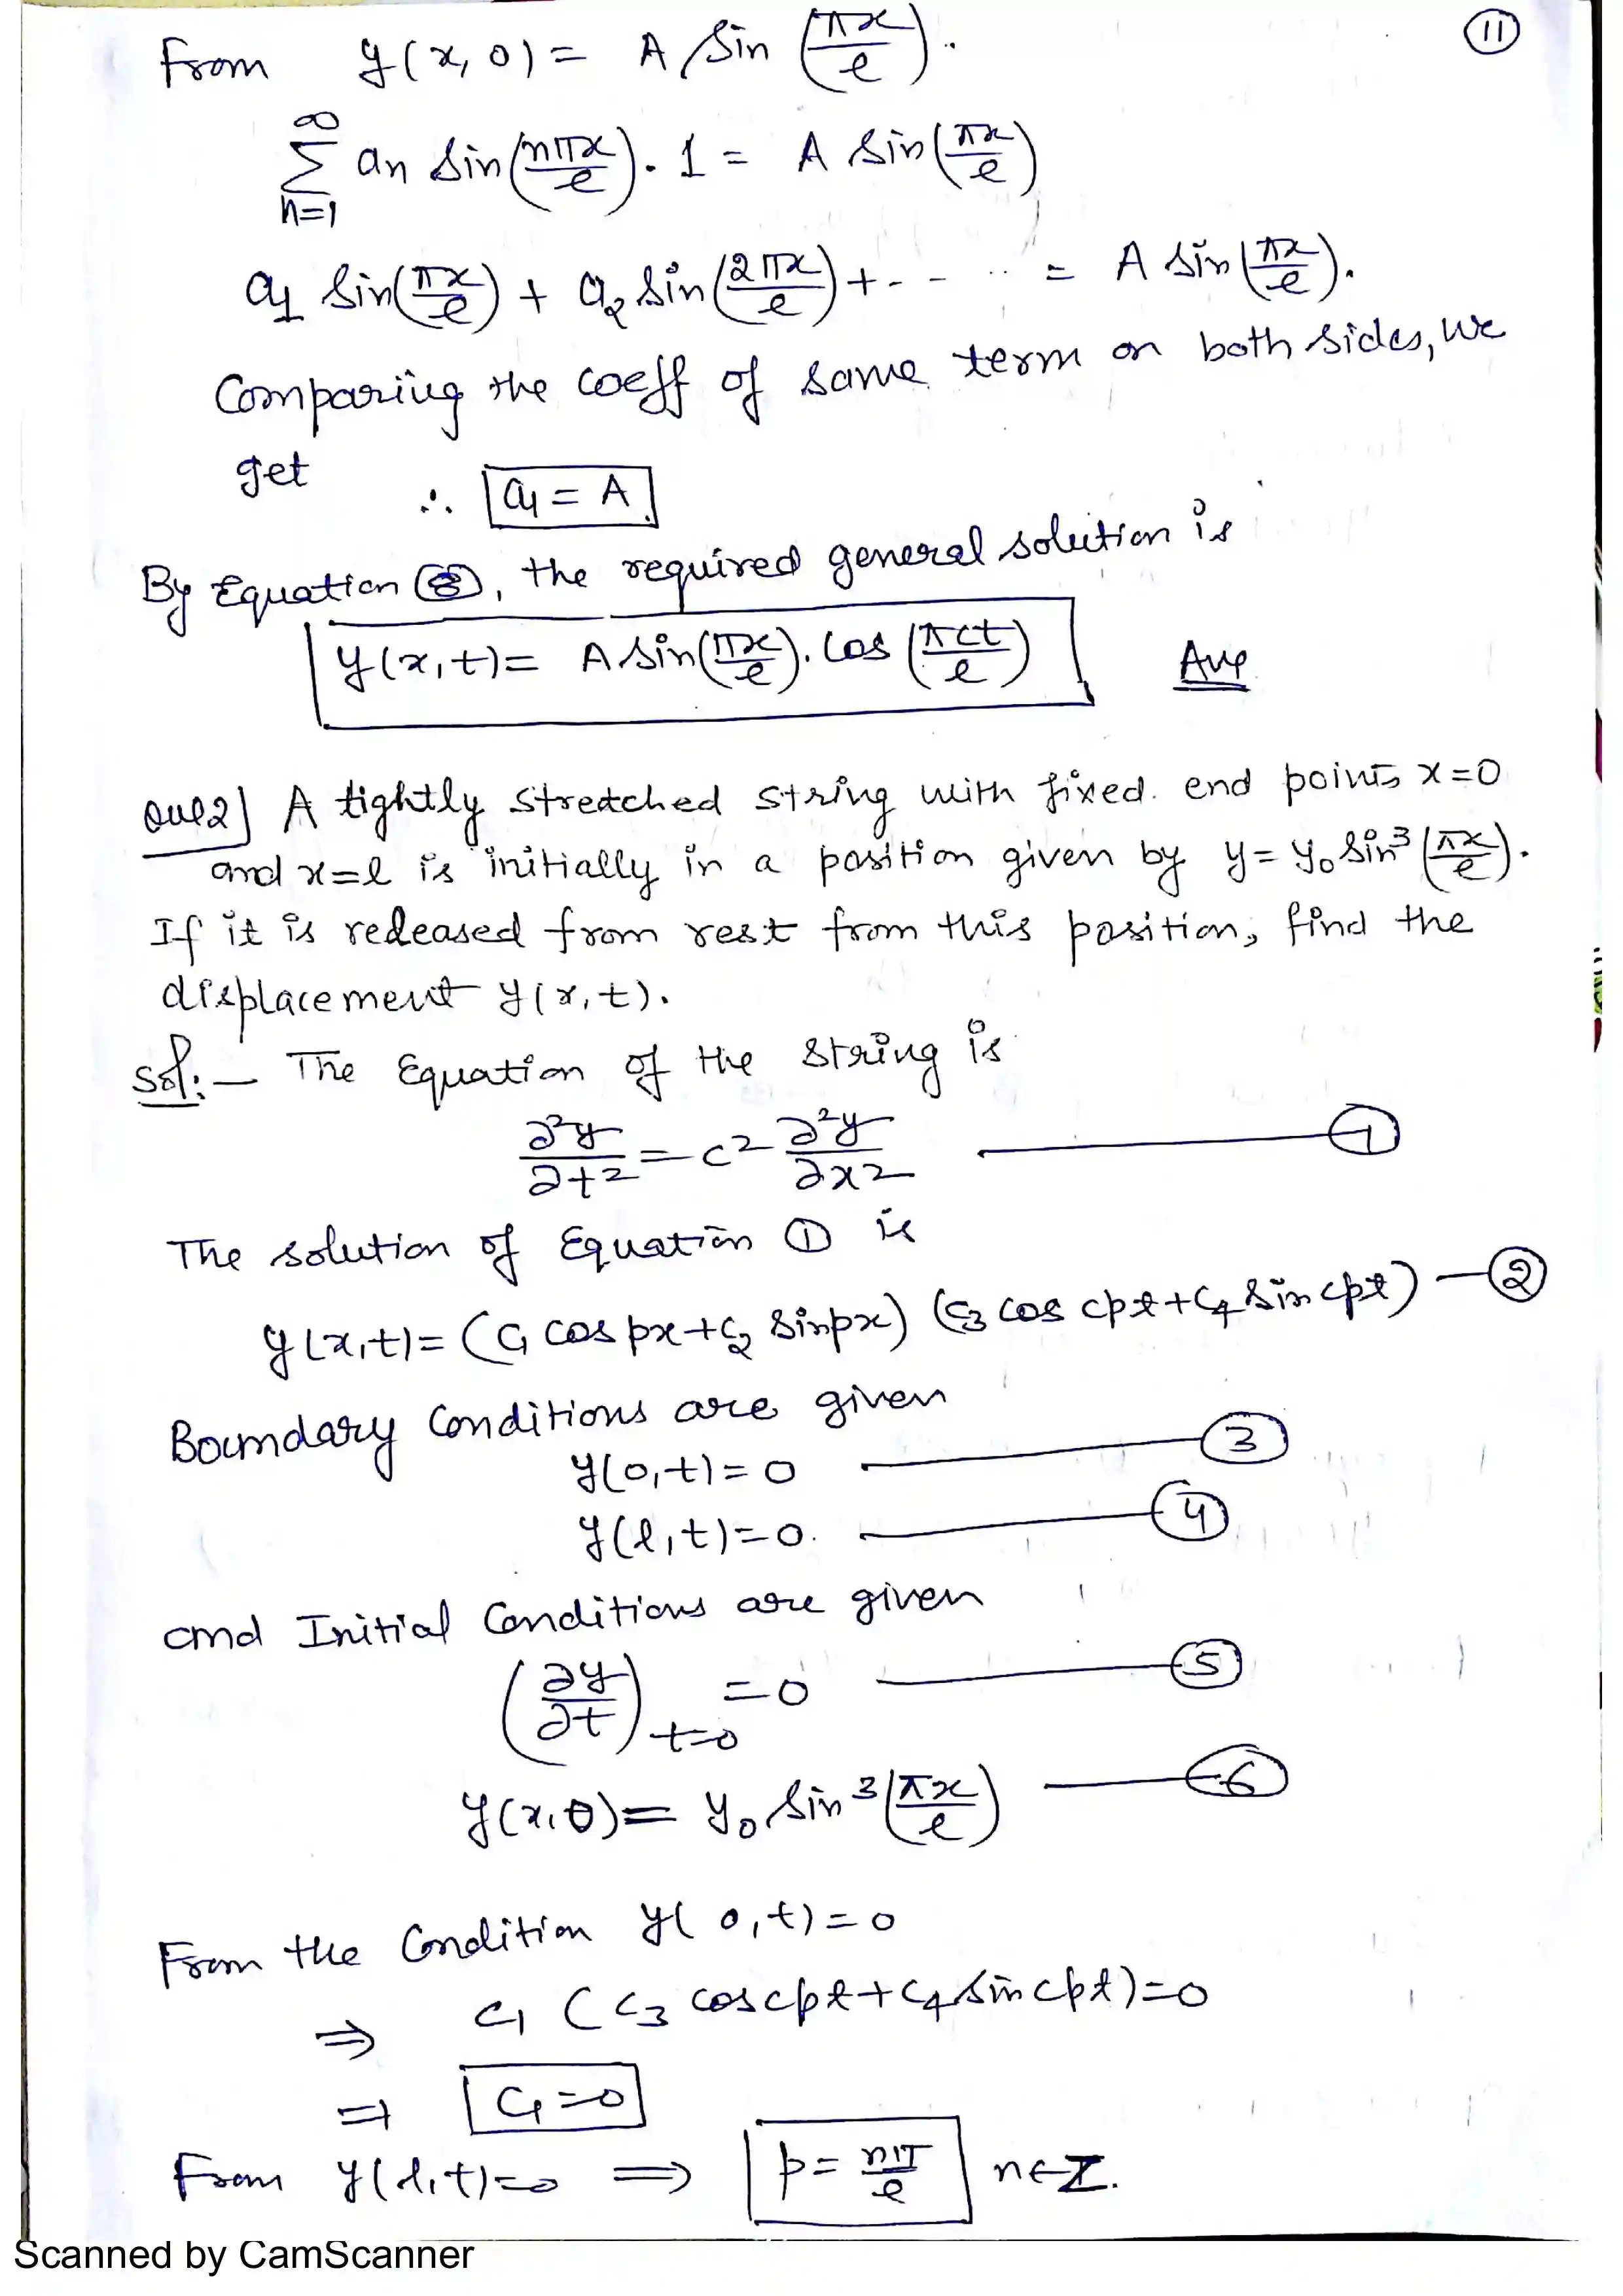 11
From y(x, 0) = A Sin (πx/l).
∞ Σ n=1 an Sin(nπx/l). 1 = A Sin(πx/l)
a1 Sin(πx/l) + a2 Sin(2πx/l) + - - .. .. = A Sin(πx/l).
Comparing the coeff of same term on both sides, we
get ∴ a1 = A
By Equation ⑧, the required general solution is
y(x,t) = A Sin(πx/l). Cos(πct/l) Ans
Que2] A tightly stretched string with fixed end points x=0
and x=l is initially in a position given by y= y₀ Sin³(πx/l).
If it is redeased from rest from this position, find the
displacement y(x,t).
Sol:- The Equation of the String is
∂²y/∂t² = c² ∂²y/∂x² —— ①
The solution of Equation ① is
y(x,t)= (C1 cos px+C2 Sinpx) (C3 cos cpt+C4 Sin cpt) —②
Boundary Conditions are given
y(0,t)=0 —— ③
y(l,t)=0. —— ④
and Initial Conditions are given
(∂y/∂t) t=0 =0 —— ⑤
y(x,0)= y₀ Sin³(πx/l) —— ⑥
From the Condition y(0,t)=0
⇒ C1 (C3 cos cpt+C4 Sin cpt)=0
⇒ C1=0
From y(l,t)=0 ⇒ p= nπ/l n∈Z.
Scanned by CamScanner